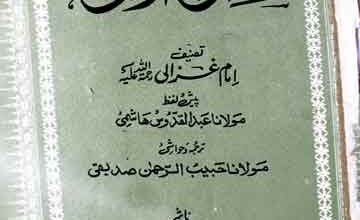 تصنیف
امام غزالی رحمۃ اللہ علیہ
پیش لفظ
مولانا عبدالقدوس ہاشمی
ترجمہ و حواشی
مولانا حبیب الرحمٰن صدیقی
ناشر